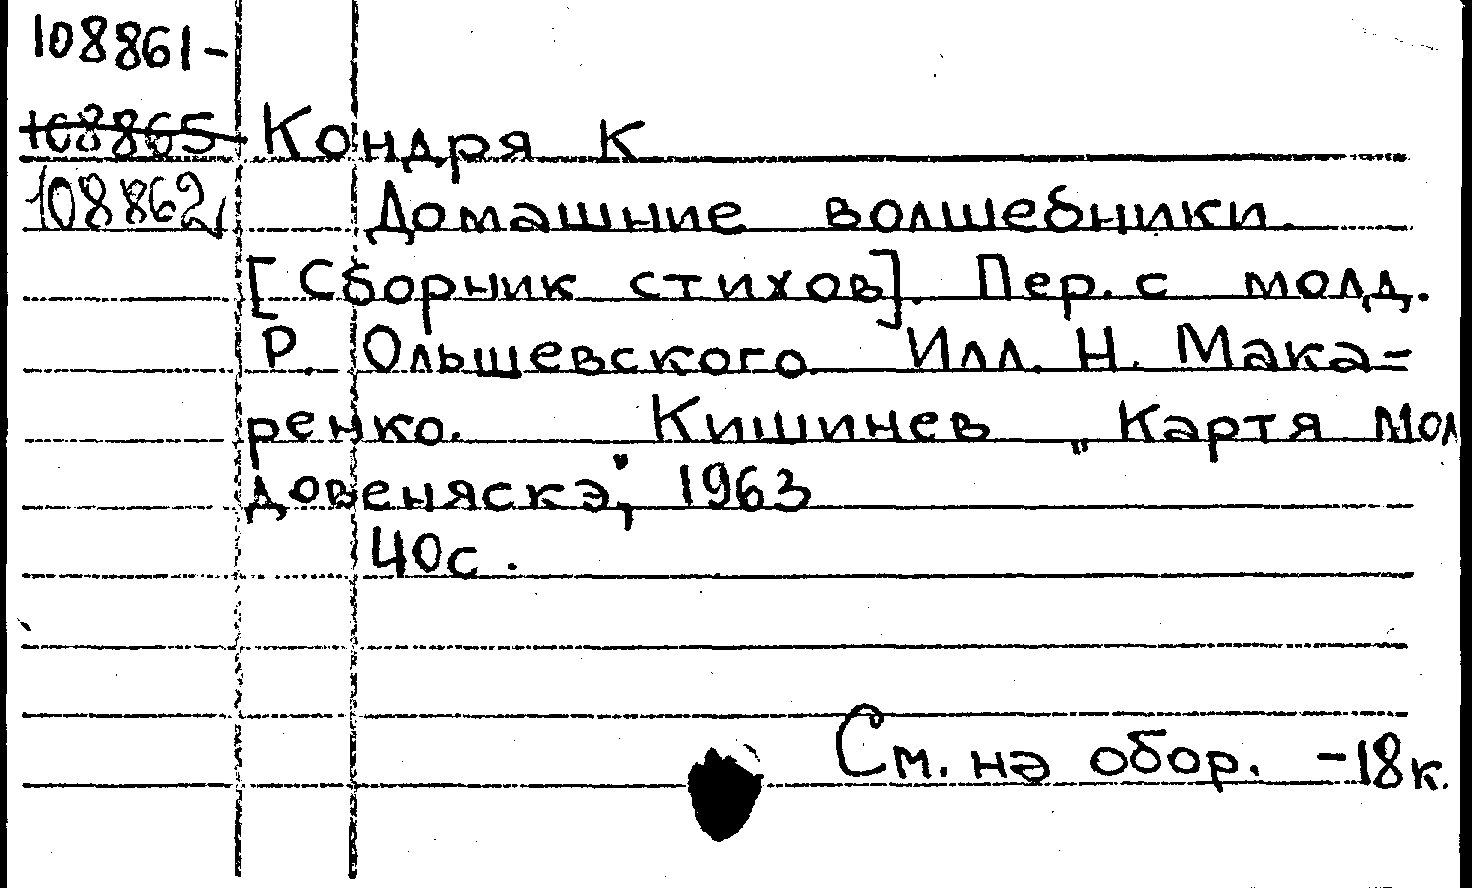 108861-
108865 Кондря К
108862, Домашние волшебники.
[Сборник стихов]. Пер. с молд.
Р. Ольшевского. Илл. Н. Мака=
ренко. Кишинев „Картя Мол
довеняскэ", 1963
40с.
См. на обор. -18к.